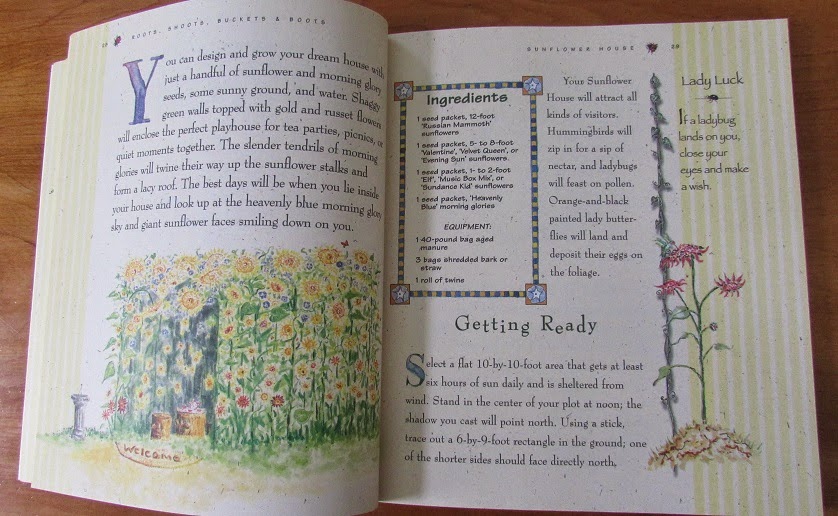 ROOTS, SHOOTS, BUCKETS & BOOTS
You can design and grow your dream house with
just a handful of sunflower and morning glory
seeds, some sunny ground, and water. Shaggy
green walls topped with gold and russet flowers
will enclose the perfect playhouse for tea parties, picnics, or
quiet moments together. The slender tendrils of morning
glories will twine their way up the sunflower stalks and
form a lacy roof. The best days will be when you lie inside
your house and look up at the heavenly blue morning glory
sky and giant sunflower faces smiling down on you.
Welcome
SUNFLOWER HOUSE 29
Ingredients
1 seed packet, 12-foot
'Russian Mammoth'
sunflowers
1 seed packet, 5- to 8-foot
'Valentine', 'Velvet Queen', or
'Evening Sun' sunflowers.
1 seed packet, 1- to 2-foot
'Elf', 'Music Box Mix', or
'Sundance Kid' sunflowers
1 seed packet, 'Heavenly
Blue' morning glories
EQUIPMENT:
1 40-pound bag aged
manure
3 bags shredded bark or
straw
1 roll of twine
Your Sunflower
House will attract all
kinds of visitors.
Hummingbirds will
zip in for a sip of
nectar, and ladybugs
will feast on pollen.
Orange-and-black
painted lady butter-
flies will land and
deposit their eggs on
the foliage.
Lady Luck
If a ladybug
lands on you,
close your
eyes and make
a wish.
Getting Ready
Select a flat 10-by-10-foot area that gets at least
six hours of sun daily and is sheltered from
wind. Stand in the center of your plot at noon; the
shadow you cast will point north. Using a stick,
trace out a 6-by-9-foot rectangle in the ground; one
of the shorter sides should face directly north.